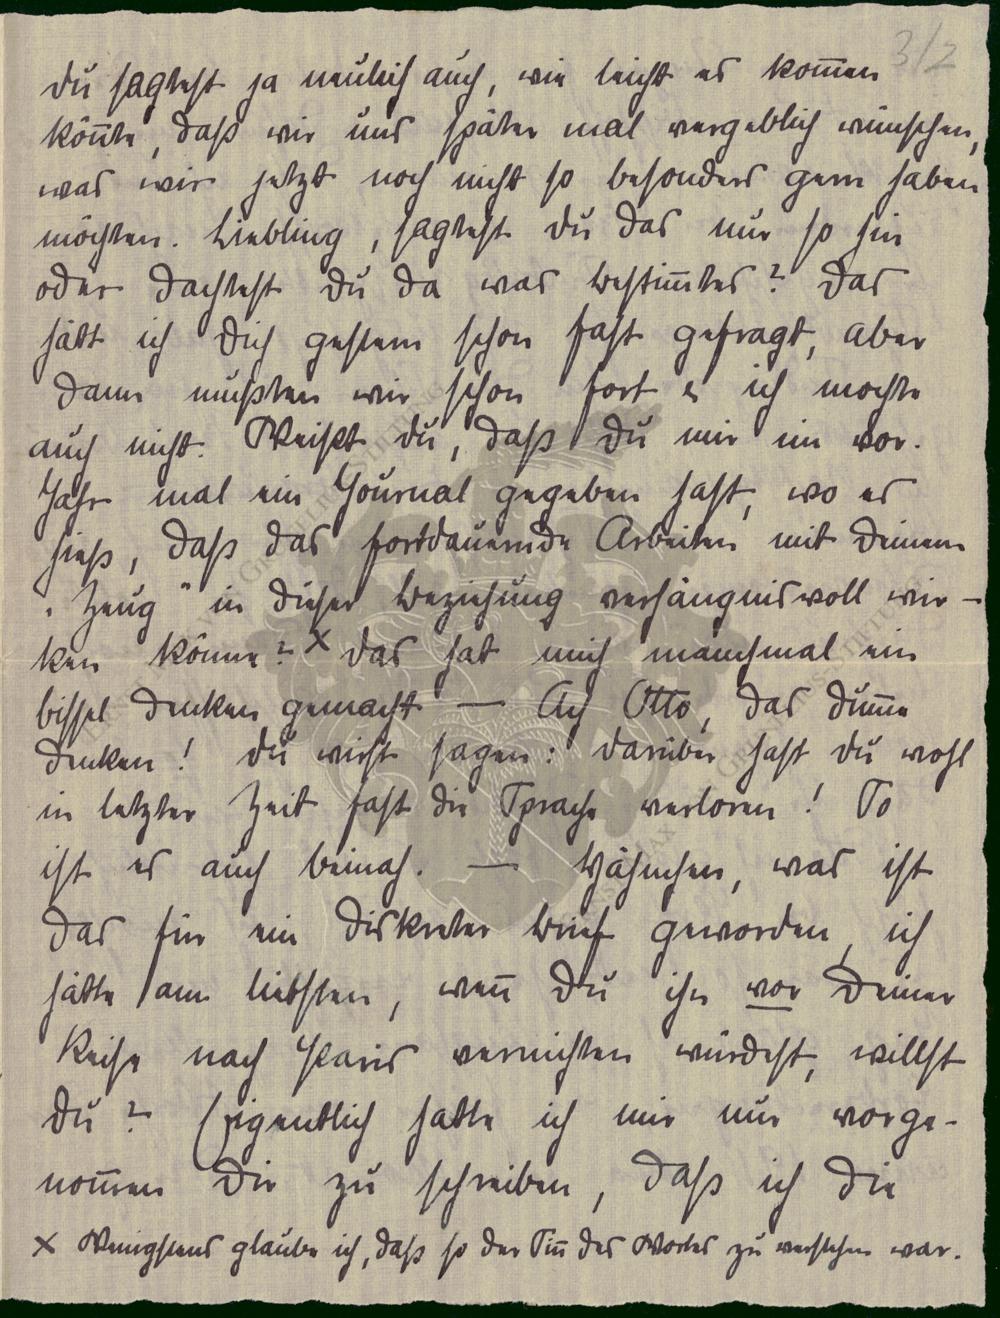 3/2
Du sagtest ja neulich auch, wie leicht es kom̅en
kön̅te, daß wir uns später mal vergeblich wünschen,
was wir jetzt noch nicht so besonders gern haben
möchten. Liebling, sagtest Du das nur so hin
oder dachtest Du da was bestim̅tes? Das
hätt ich Dich gestern schon fast gefragt, aber
dann mußten wir schon fort & ich mochte
auch nicht. Weißt Du, daß Du mir im vor.
Jahr mal ein Journal gegeben hast, wo es
hieß, daß das fortdauernde Arbeiten mit Deinem
„Zeug" in dieser Beziehung verhängnisvoll wir-
ken könne? x Das hat mich manchmal ein
bissel denken gemacht — Ach Otto, das dum̅e
Denken! Du wirst sagen: darüber hast Du wohl
in letzter Zeit fast die Sprache verloren! So
ist es auch beinah. — Hähnchen, was ist
das für ein diskreter Brief geworden, ich
hätte am liebsten, wen̅ Du ihn vor Deiner
Reise nach Paris vernichten würdest, willst
Du? Eigentlich hatte ich mir nur vorge-
nom̅en Dir zu schreiben, daß ich die
x Wenigstens glaube ich, daß so der Sin̅ des Wortes zu verstehen war.